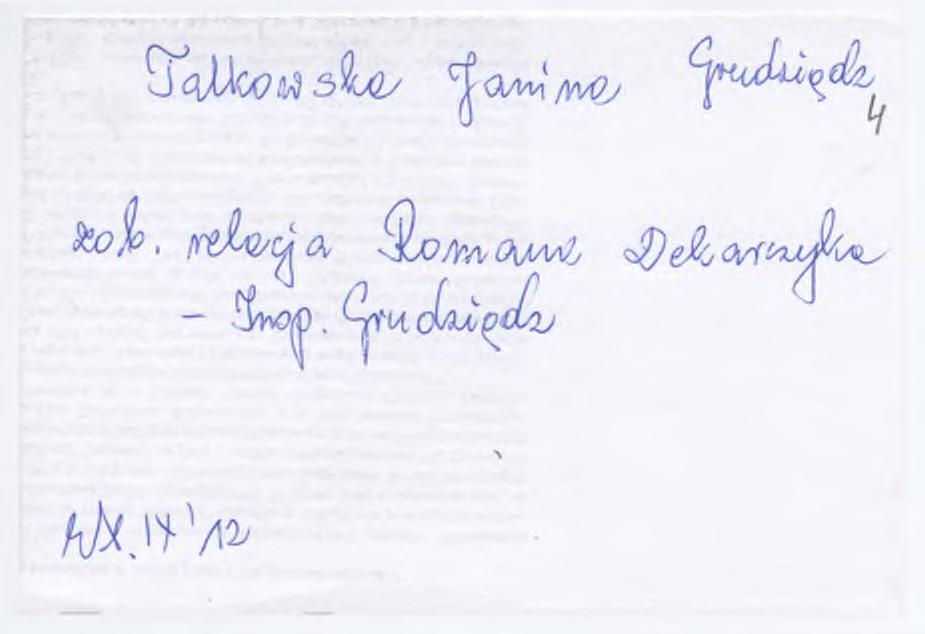 Talkowska Janina Grudziądz
4
zob. relacja Romana Dekarczyka
- Insp. Grudziądz
IX '12